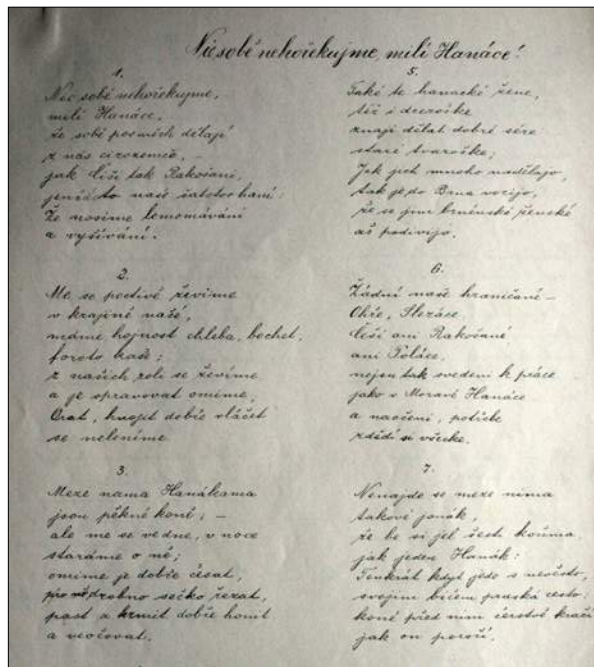 Nic sobě nehořekujme, milí Hanáce!
1.
Nic sobě nehořekujme,
milí Hanáce,
že sobě posměch dělajó
z nás cizozemce, –
jak Češi tak Rakošani,
jenž naše šatstvo haní:
Že nosíme lemomávání
a vyšívání.
2.
Me se poctivě živíme
v krajině naší,
máme hojnost chleba, bochet,
forota kaše;
z našich rolí se živíme
a je spravovat omíme,
Orat, hnojit dobře vláčet
se nelenime.
3.
Meze nama Hanákama
jsou pěkné koně; –
ale me se ve dne, v noce
staráme o ně;
omíme je dobře česat,
drobno sečko řezat,
past a krmit dobře honit
a
5.
Také te hanacké žene,
též i dceroške
znají dělat dobré sére
staré tvaroške;
Jak jich mnoho nadělajo,
tak je do Brna vozijo,
že se jim brněnské ženské
až podivijó.
6.
Žádní naše hraničané –
Ohře, Slezáce,
Češi ani Rakošané
ani Poláce,
nejsou tak svedeni k práce
jako v Moravě Hanáce
a naočeni, potřebe
zdědí si všecke.
7.
Nenajde se meze nima
takové jonák,
že be si jel šesti koňma,
jak jeden Hanák:
Tenkrát když jede s nevěsto,
svojim bičem práská cesto:
koně před ním čerstvě kráčí
jak on poročí.